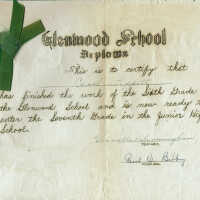 Glenwood School
Diploma
This is to certify that
has finished the work of the Sixth Grade
the Glenwood School and is now ready
enter the Seventh Grade in the Junior Hi
School.
Paul W.